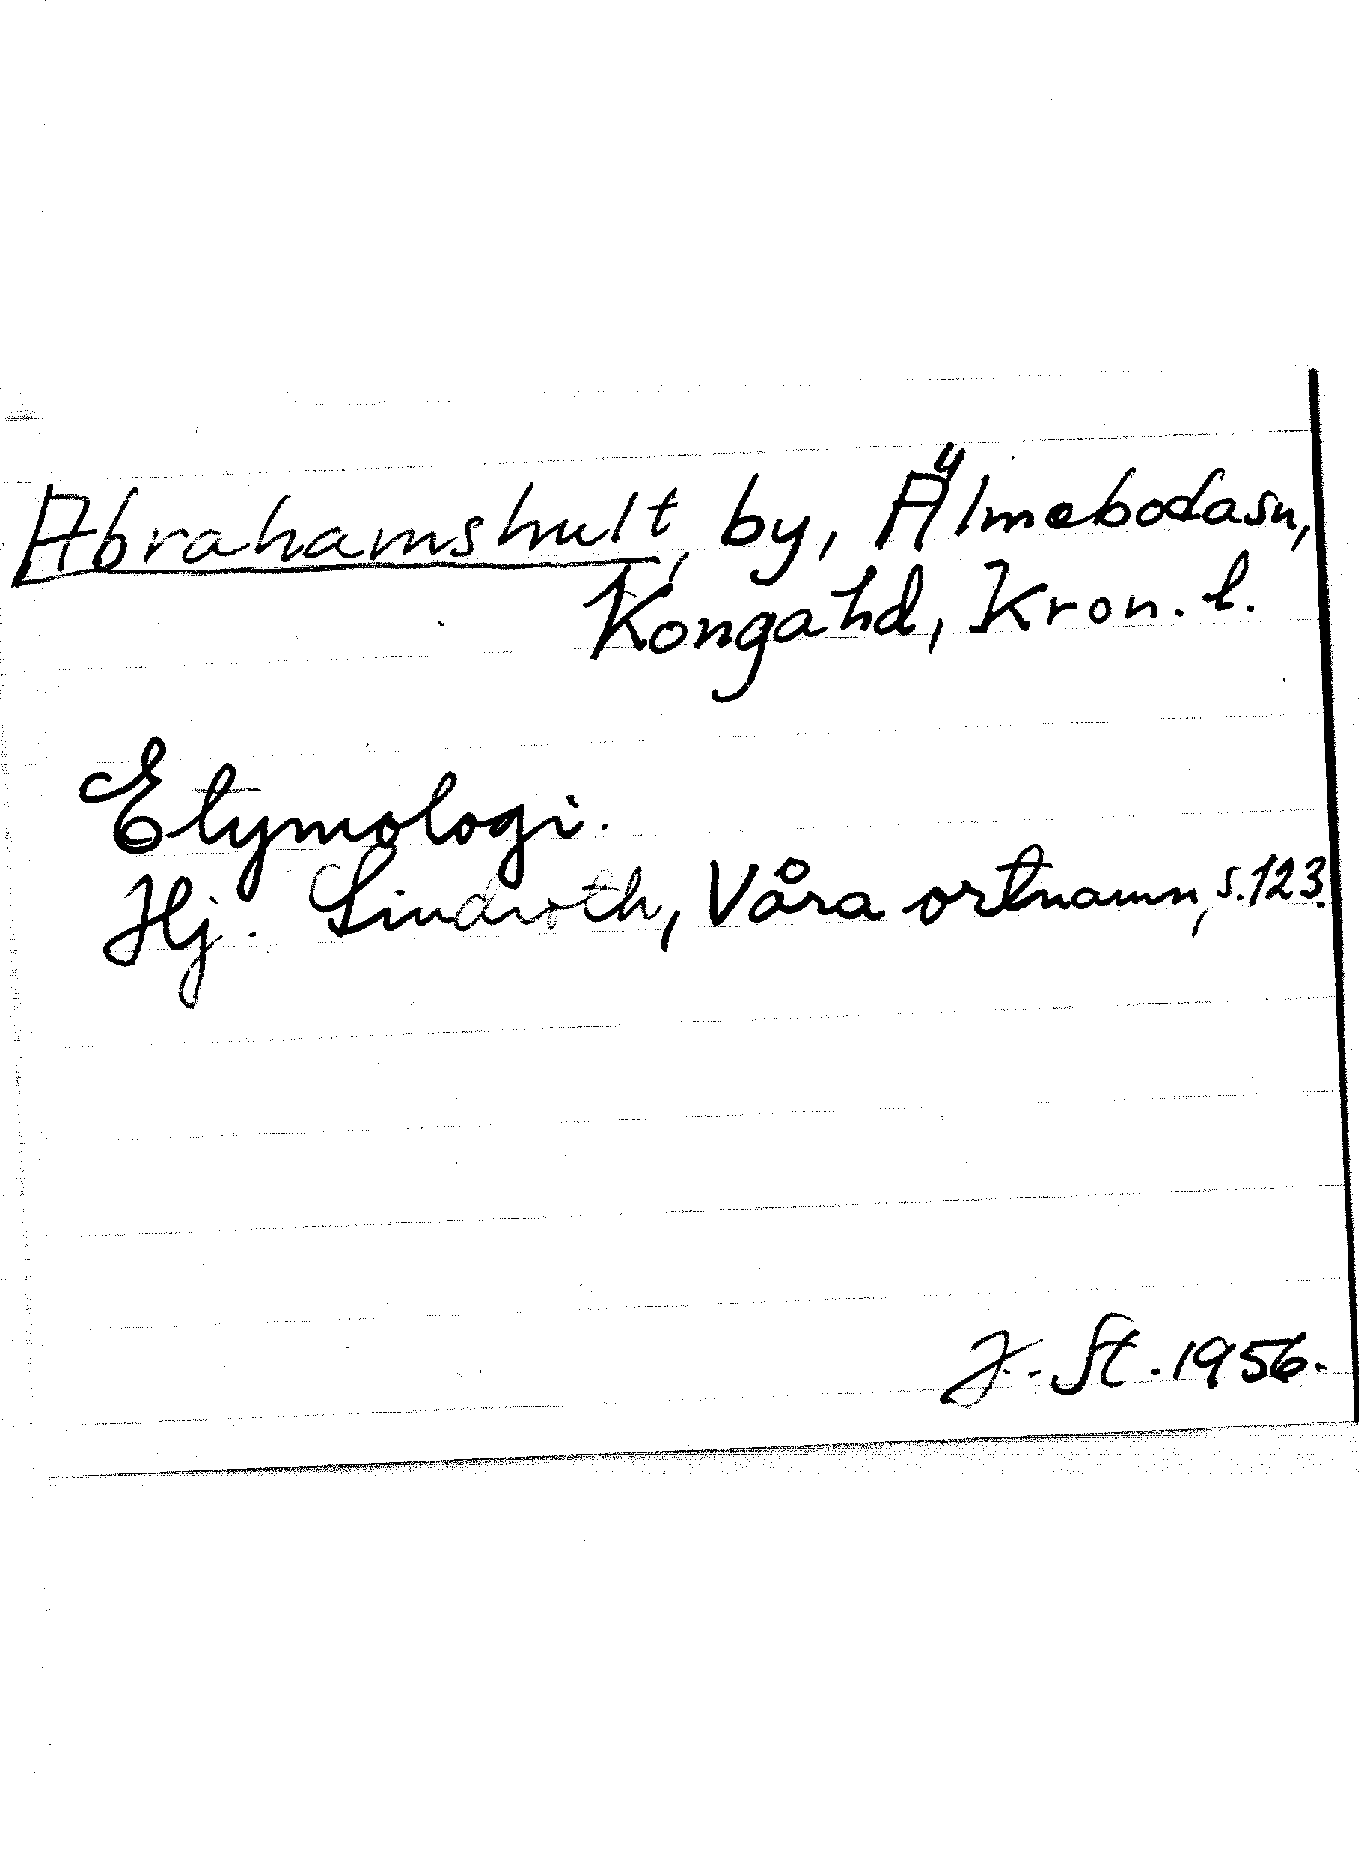 Abrahamshult, by, Älmeboda sn,
Konga hd, Kron. l.
Etymologi.
Hj. Lindroth, Våra ortnamn, s. 123.
J. St. 1956.